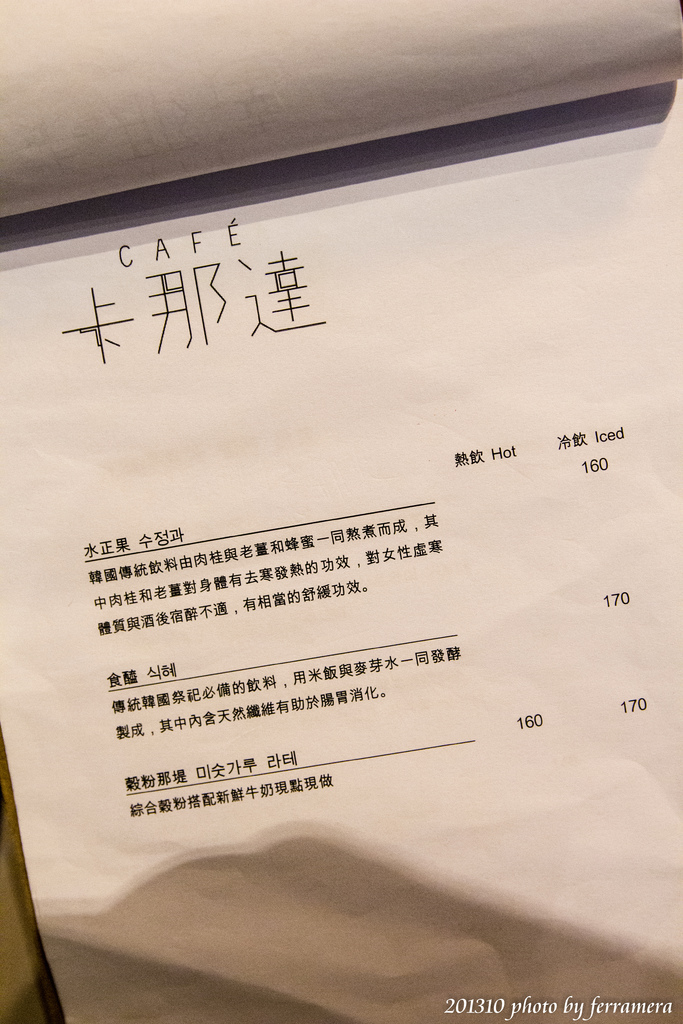 CAFÉ
卡那達
熱飲 Hot 冷飲 Iced
160
水正果 수정과
韓國傳統飲料由肉桂與老薑和蜂蜜一同熬煮而成，其
中肉桂和老薑對身體有去寒發熱的功效，對女性虛寒
體質與酒後宿醉不適，有相當的舒緩功效。
170
食醯 식혜
傳統韓國祭祀必備的飲料，用米飯與麥芽水一同發酵
製成，其中內含天然纖維有助於腸胃消化。
160 170
穀粉那堤 미숫가루 라테
綜合穀粉搭配新鮮牛奶現點現做
201310 photo by ferramera